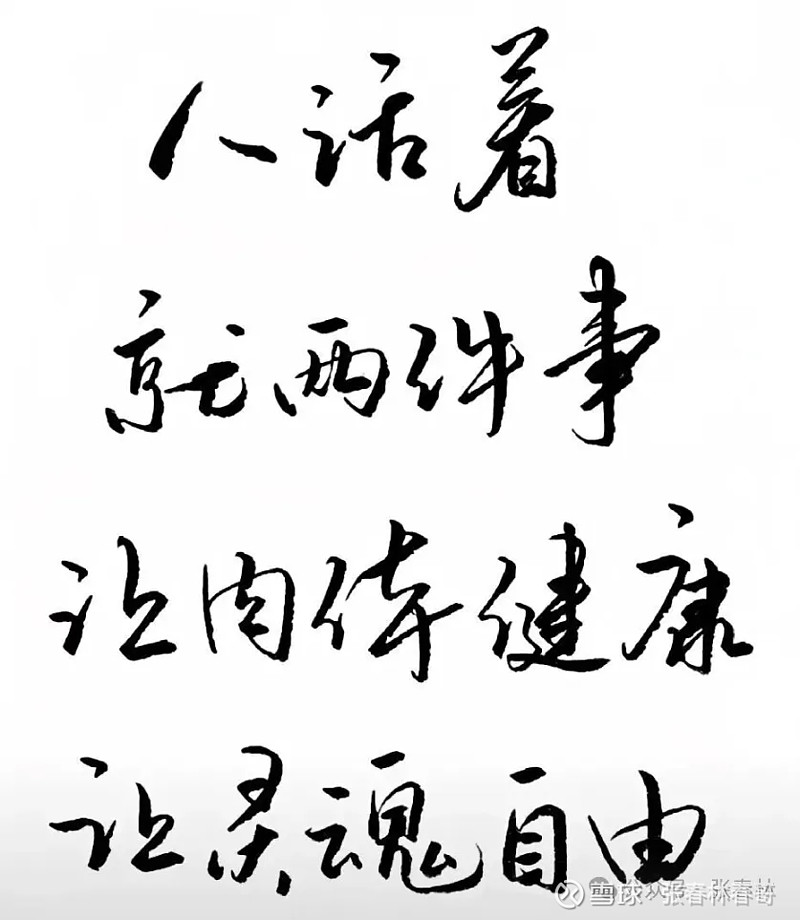 人活着
就两件事
让肉体健康
让灵魂自由
雪球：张春林春哥